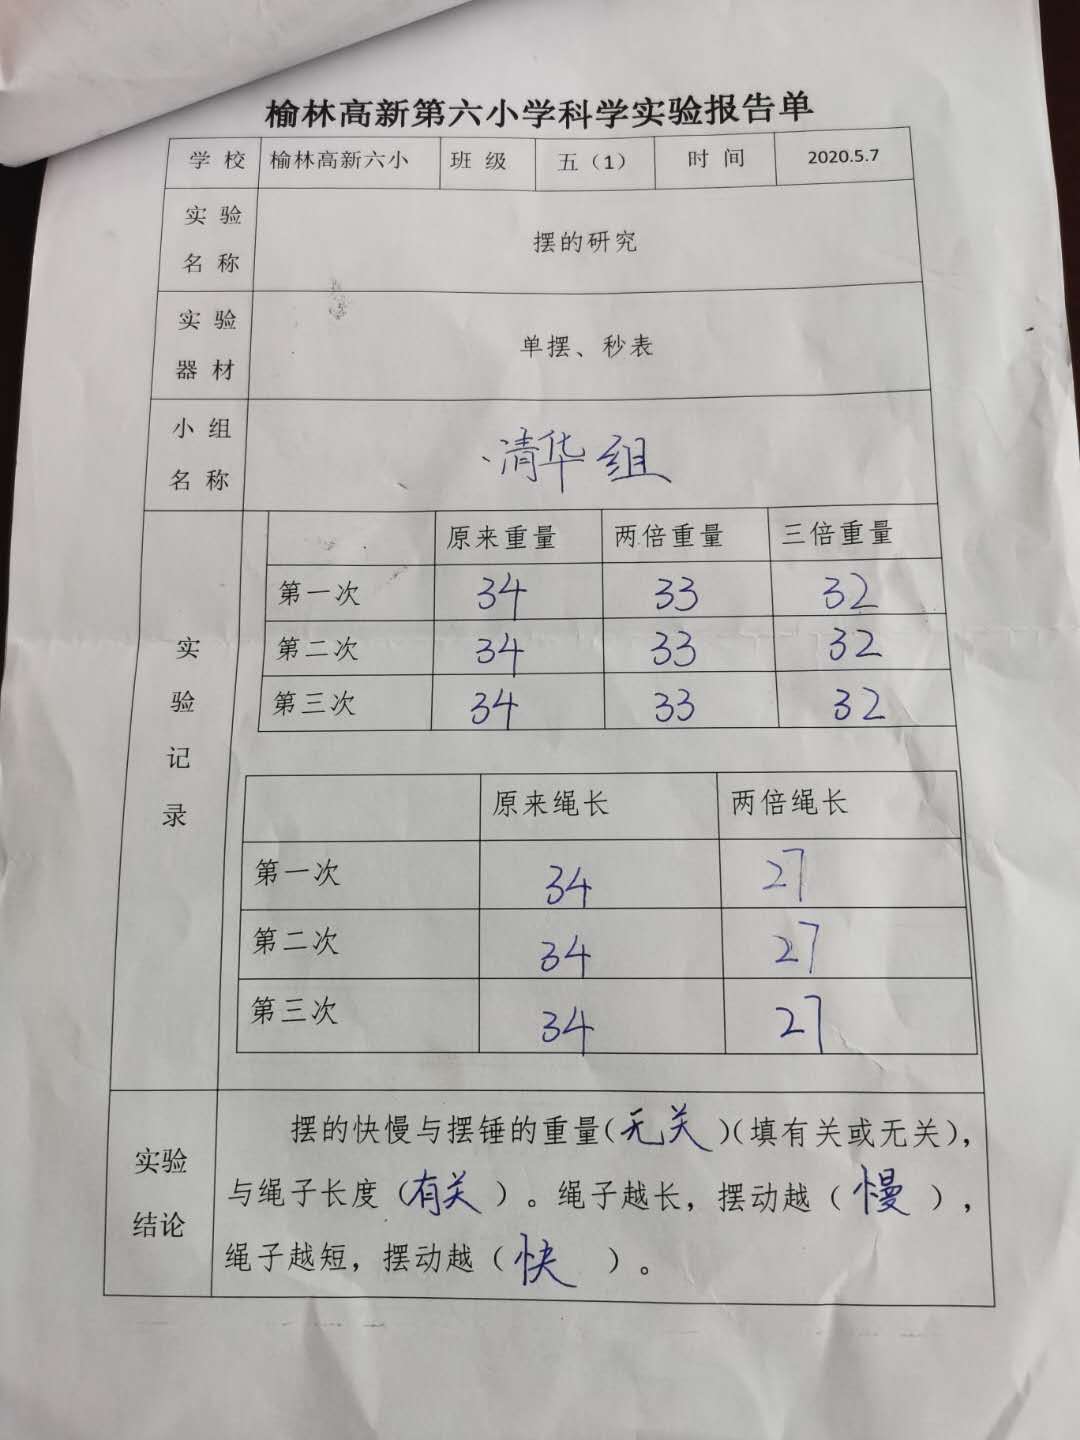 榆林高新第六小学科学实验报告单
学 校 榆林高新六小 班 级 五（1） 时 间 2020.5.7
实 验
名 称
摆的研究
实 验
器 材
单摆、秒表
小 组
名 称
清华组
实
验
记
录
原来重量 两倍重量 三倍重量
第一次 34 33 32
第二次 34 33 32
第三次 34 33 32
原来绳长 两倍绳长
第一次 34 27
第二次 34 27
第三次 34 27
实验
结论
摆的快慢与摆锤的重量(无关)(填有关或无关)，
与绳子长度（有关）。绳子越长，摆动越（慢），
绳子越短，摆动越（快）。